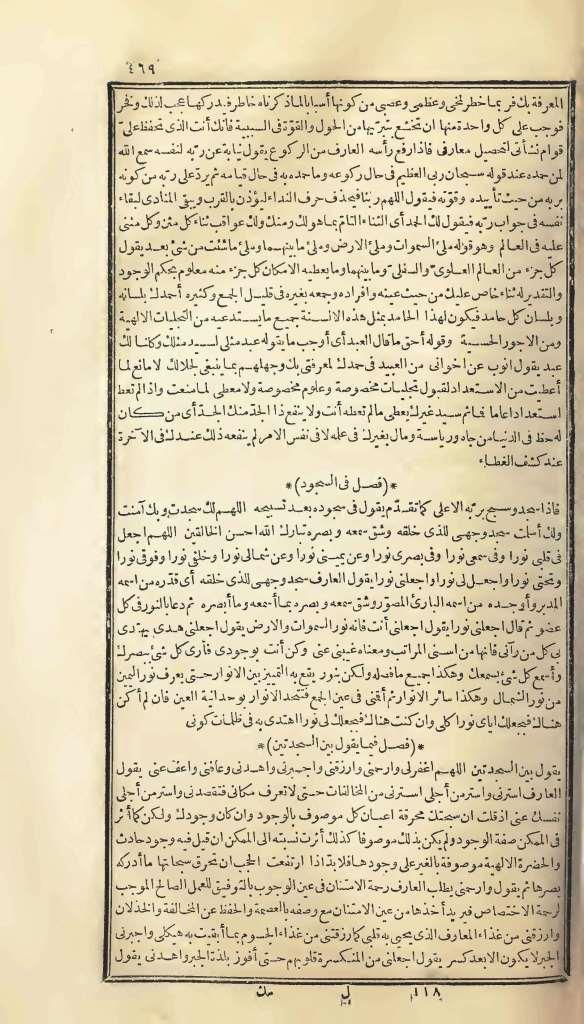 ٤٦٩
المعرفة بك فر بما خطر لمخى وعظمى وعصبى من كونها أسبابا لما ذكرناه خاطر فيدركها عجب لذلك وفخر
فوجب على كل واحدة منها ان تخشع بتبرّيها من الحول والقوّة فى السببية فانك أنت الذى تحفظ علىّ
قوام نشأتى لتحصيل معارفى فاذا رفع رأسه العارف من الركوع يقول نيابة عن ربه لنفسه سمع الله
لمن حمده عند قوله سبحان ربى العظيم فى حال ركوعه وما حمده به فى حال قيامه ثم يردّ على ربه من كونه
بربه من حيث تأييده وقوّته فيقول اللهم ربنا فيحذف حرف النداء ليؤذن بالقرب ويبقى المنادى لبقاء
نفسه فى جواب ربه فيقول لك الحمد أى الثناء التام بما هو لك ومنك ولك عواقب ثناء كل مثن وكل مثنى
عليه فى العالم وهو قوله ملئ السموات وملئ الارض وملئ ما بينهما وملئ ما شئت من شئ بعد يقول
كل جزء من العالم العلوى والسفلى وما بينهما وما يعطيه الامكان كل جزء منه معلوم بحكم الوجود
والتقدير له ثناء خاص عليك من حيث عينه وافراده وجمعه بغيره فى قليل الجمع وكثيره أحمدك بلسانه
وبلسان كل حامد فيكون لهذا الحامد بمثل هذه الالسنة جميع ما يستدعيه من التجليات الالهية
ومن الاجور الحسية وقوله أحق ما قال العبد أى أوجب ما يقوله عبد مثلى لسيد مثلك وكلنا لك
عبد يقول انوب عن اخوانى من العبيد فى حمدك لمعرفتى بك وجهلهم بما ينبغى لجلالك لا مانع لما
أعطيت من الاستعداد لقبول تجليات مخصوصة وعلوم مخصوصة ولا معطى لما منعت واذا لم تعط
استعدادا عاما فما ثم سيد غيرك يعطى ما لم تعطه أنت ولا ينفع ذا الجدّ منك الجدّ أى من كان
له حظ فى الدنيا من جاه ورياسة ومال بغيرك فى علمه لا فى نفس الامر لم ينفعه ذلك عندك فى الآخرة
عند كشف الغطاء
*(فصل فى السجود)*
فاذا سجد وسبح بربه الاعلى كما تقدّم يقول فى سجوده بعد تسبيحه اللهم لك سجدت وبك آمنت
ولك أسلمت سجد وجهى للذى خلقه وشق سمعه وبصره تبارك الله احسن الخالقين اللهم اجعل
فى قلبى نورا وفى سمعى نورا وفى بصرى نورا وعن يمينى نورا وعن شمالى نورا وخلفى نورا وفوقى نورا
وتحتى نورا واجعل لى نورا واجعلنى نورا يقول العارف سجد وجهى للذى خلقه أى قدّره من اسمه
المدبر وأوجده من اسمه البارئ المصوّر وشق سمعه وبصره بما أسمعه وما أبصره ثم دعا بالنور فى كل
عضو ثم قال اجعلنى نورا يقول اجعلنى أنت فانه نور السموات والارض يقول اجعلنى هدى يهتدى
بى كل من رآنى فانها من اسنى المراتب ومعناه غيبنى عنى وكن أنت بوجودى فأرى كل شئ ببصرك
وأسمع كل شئ بسمعك وهكذا جميع ما فصله ولكن بنور يقع به التمييز بين الانوار حتى يعرف نور اليمين
من نور الشمال وهكذا سائر الانوار ثم أفنى فى عين الجمع فتتحد الانوار بوحدانية العين فان لم أكن
هناك فبجعلك اياى نورا كلى وان كنت هناك فبجعلك لى نورا اهتدى به فى ظلمات كونى
*(فصل فيما يقول بين السجدتين)*
يقول بين السجدتين اللهم اغفر لى وارحمنى وارزقنى واجبرنى واهدنى وعافنى واعف عنى يقول
العارف استرنى واستر من أجلى استرنى من المخالفات حتى لا تعرف مكانى فتقصدنى واستر من أجلى
نفسك عنى اذ قلت ان سبحتك محرقة اعيان كل موصوف بالوجود وان كان وجودك ولكن كما أثر
فى الممكن صفة الوجود ولم يكن بذلك موصوفا كذلك أثرت نسبته الى الممكن ان قيل فيه وجود حادث
والحضرة الالهية موصوفة بالغير على وجودها فلا بدّ اذا ارتفعت الحجب ان تحرق سبحاتها ما أدركه
بصرها ثم يقول وارحمنى يطلب العارف رحمة الامتنان فى عين الوجوب بالتوفيق للعمل الصالح الموجب
لرحمة الاختصاص فيريد أخذها من عين الامتنان مع وصفه بالعصمة والحفظ عن المخالفة والخذلان
وارزقنى من غذاء المعارف الذى يحيى به قلبى كما رزقتنى من غذاء الجسوم بما أبقيت به هيكلى واجبرنى
الجبر لا يكون الا بعد كسر يقول اجعلنى من المنكسرة قلوبهم حتى أفوز بلذة الجبر واهدنى يقول
١١٨ ل مك